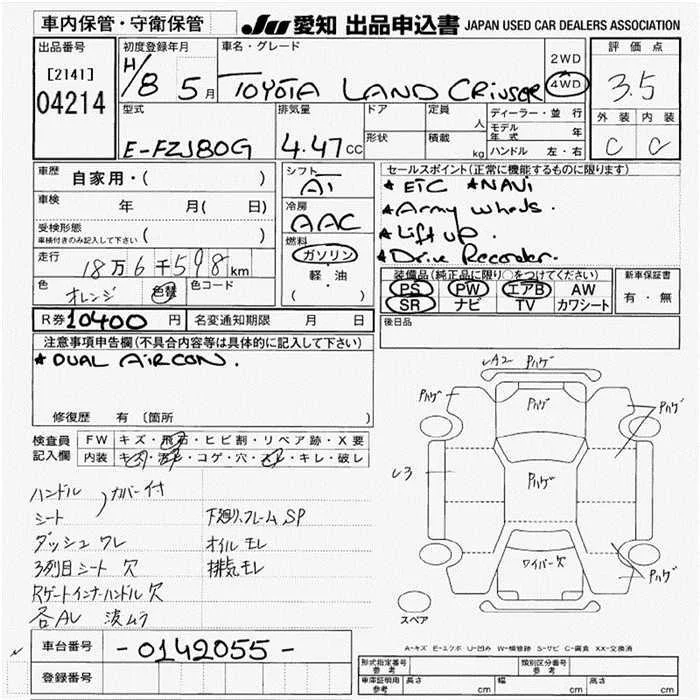 車内保管・守衛保管 JU 愛知 出品申込書 JAPAN USED CAR DEALERS ASSOCIATION
出品番号 初度登録年月 車名・グレード 2WD 評価点
[2141] H/8 5月 TOYOTA LAND CRIUSER 4WD 3.5
04214
型式 排気量 ドア 定員 人 ディーラー・並行 外装 内装
E-FZJ80G 4.47CC 形状 積載 kg モデル年式 年 C C
ハンドル 左・右
車歴 自家用・( ) シフト AT セールスポイント(正常に機能するものに限ります)
車検 年 月( 日) 冷房 AAC ★ETC ★NAVI
受検形態 ( ) ★Army wheels.
車検付きのみ記入して下さい 燃料 ★Lift up.
走行 18万6千598km ガソリン ★Drive Recorder.
色 オレンジ 色替 色コード 軽・油 ( )
装備品(純正品に限り○をつけてください) 新車保証書
PS PW エアB AW 有・無
SR ナビ TV カワシート
R券 10400円 名変通知期限 月 日 後日品
注意事項申告欄(不具合内容等は具体的に記入して下さい)
★DUAL AIRCON.
修復歴 有 〔箇所
検査員記入欄 FW キズ・飛石・ヒビ割・リペア跡・X要
内装 キズ・汚レ・コゲ・穴・スレ・キレ・破レ
ハンドル
シート 〉カバー付
ダッシュ ワレ
3列目シート 欠
Rゲートインナーハンドル欠
各AL 波ムラ
下廻リ、フレーム SP
オイル モレ
排気モレ
A2 Pハゲ
Pハゲ Pハゲ Pハゲ
3 Pハゲ
ワイパー欠 Pハゲ
スペア
A-キズ E-エクボ U-凹み W-補修跡 S-サビ C-腐食 XX-交換済
車台番号 -0142055-
登録番号
形式指定番号 参考 類別区分番号 参考
車庫証明用 参考 長さ cm 幅 cm 高さ cm